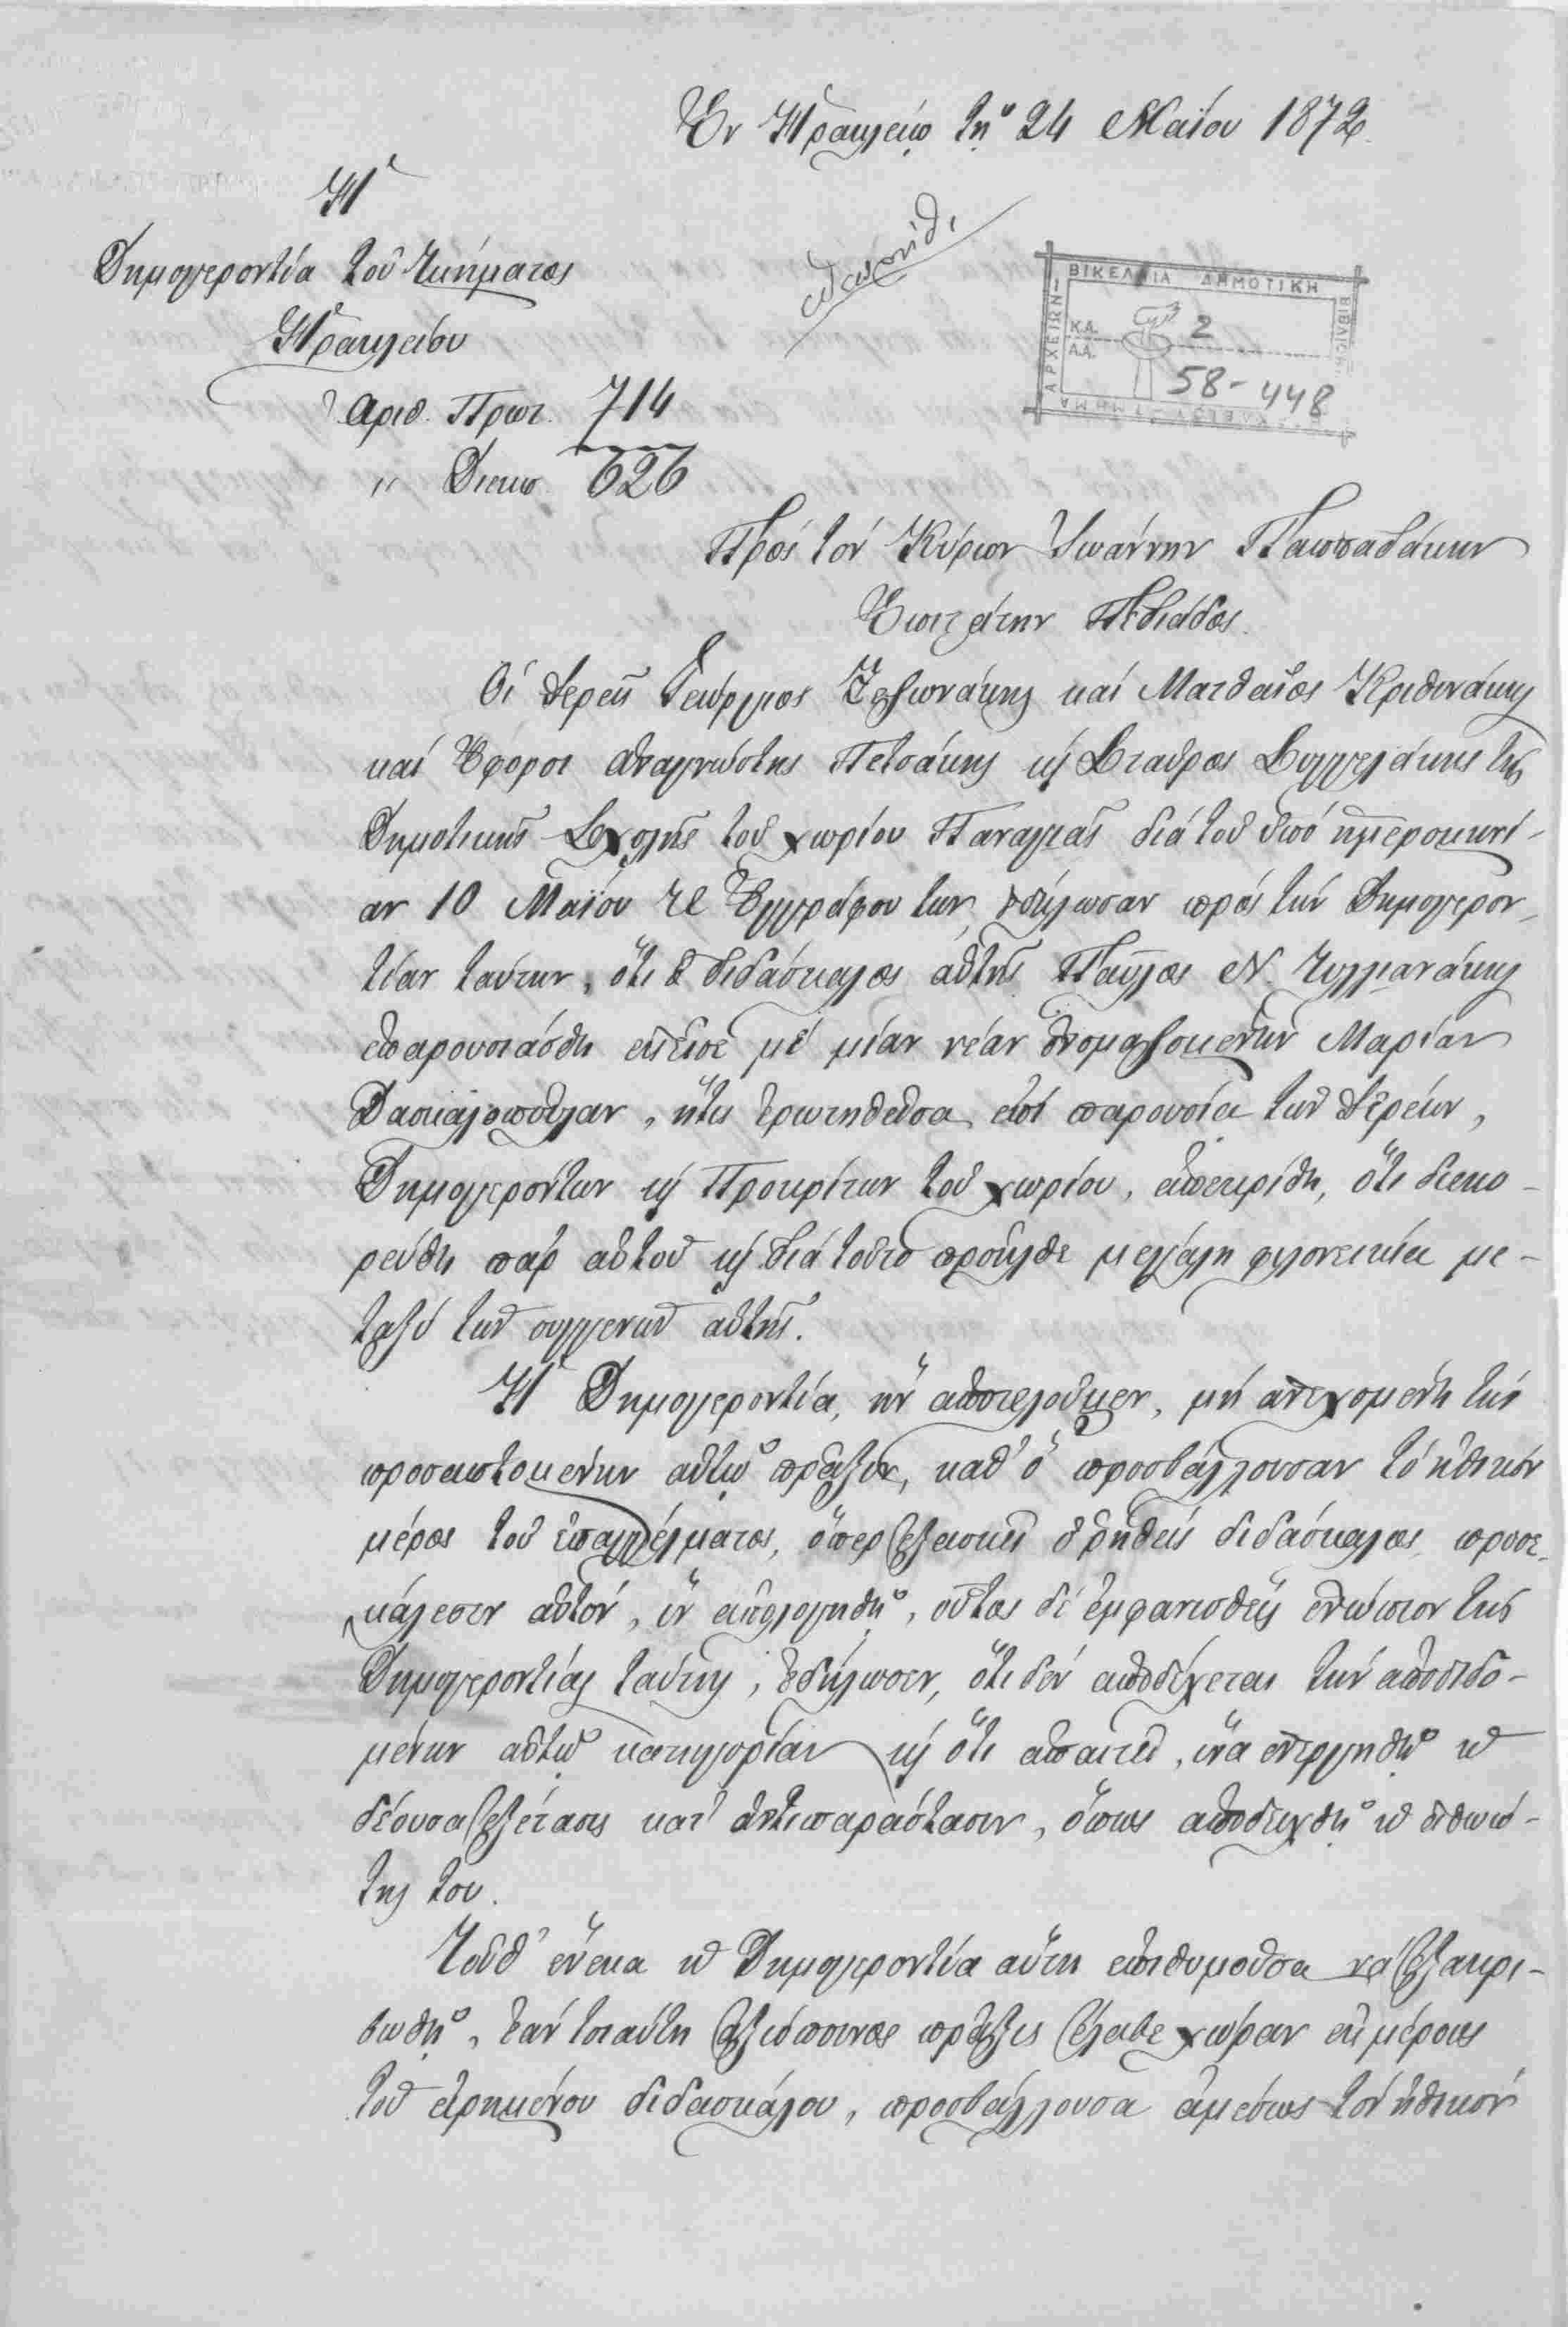 Ἐν Ἡρακλείῳ τῇ 24 Μαΐου 1872.
Ἡ
Δημογεροντία τοῦ τμήματος
Ἡρακλείου
Ἀριθ. Πρωτ. 714
〃 Διεκπ. 626
ΒΙΚΕΛΑΙΑ ΔΗΜΟΤΙΚΗ ΒΙΒΛΙΟΘ
ΤΜΗΜΑ ΑΡΧΕΙΩΝ
Κ.Δ. 2
Α.Α. 58-448
Πρὸς τὸν Κύριον Ἰωάννην Παππαδάκην
Ἐπιστάτην Πεδιάδος.
Οἱ Ἱερεῖς Γεώργιος καὶ Ματθαῖος Κριθινάκης
καὶ Ἔφοροι Ἀναγνώστης Πετσάκης κ Σταῦρος Συγγελάκης τῆς
Δημοτικῆς Σχολῆς τοῦ χωρίου Παναγιᾶς διὰ τοῦ ὑπὸ ἡμερομηνί-
αν 10 Μαΐου Ἐγγράφου των, ἐδήλωσαν πρὸς τὴν Δημογερον-
τίαν ταύτην, ὅτι ὁ διδάσκαλος αὐτῆς Παῦλος Ν. Τυλλιανάκης
ἐπαρουσιάσθη ἐκεῖσε μὲ μίαν νέαν ὀνομαζομένην Μαρίαν
Δασκαλοπούλαν, ἥτις ἐρωτηθεῖσα ἐπὶ παρουσίᾳ τῶν Ἱερέων,
Δημογερόντων κ Προκρίτων τοῦ χωρίου, ἀπεκρίθη, ὅτι διεκο-
ρεύθη παρ' αὐτοῦ κ διὰ τοῦτο προῆλθε μεγάλη φιλονεικία με-
ταξὺ τῶν συγγενῶν αὐτῆς.
Ἡ Δημογεροντία, ἣν ἀποτελοῦμεν, μὴ ἀνεχομένη τὴν
προσαπτομένην αὐτῷ πρᾶξιν, καθ' ὃ προσβάλλουσαν τὸ ἠθικὸν
μέρος τοῦ ἐπαγγέλματος, ὅπερ ἐξασκεῖ ὁ ῥηθεὶς διδάσκαλος, προσε-
κάλεσεν αὐτόν, ἵν' ἀπολογηθῇ, οὗτος δὲ ἐμφανισθεὶς ἐνώπιον τῆς
Δημογεροντίας ταύτης, ἐδήλωσεν, ὅτι δὲν ἀποδέχεται τὴν ἀποδιδο-
μένην αὐτῷ κατηγορίαν κ ὅτι ἀπαιτεῖ, ἵνα ἐνεργηθῇ ἡ
δέουσα ἐξέτασις κατ' ἀντιπαράστασιν, ὅπως ἀποδειχθῇ ἡ ἀθωό-
της του.
Τοῦθ' ἕνεκα ἡ Δημογεροντία αὕτη ἐπιθυμοῦσα νὰ ἐξακρι-
βωθῇ, ἐὰν τοιαύτη ἀξιόποινος πρᾶξις ἔλαβε χώραν ἐκ μέρους
τοῦ εἰρημένου διδασκάλου, προσβάλλουσα ἀμέσως τὸν ἠθικὸν